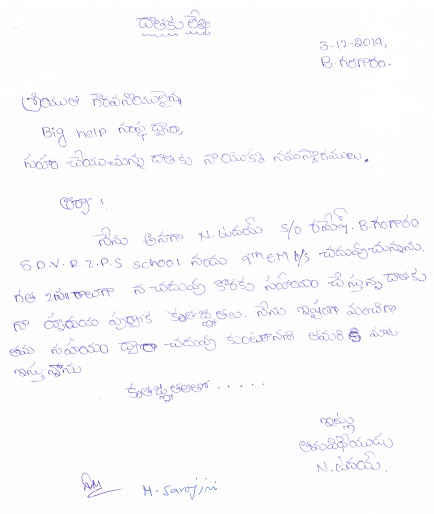 దాతకు లేఖ
3-12-2019,
B.గంగారం.
శ్రీయుత గౌరవనీయులైన
Big help సంస్థ ద్వారా,
సహాయం చేయుచున్న దాతకు నా యొక్క నమస్కారములు.
ఆర్యా!
నేను అనగా N.ఉదయ్ S/o రమేష్. B.గంగారం
S.D.V.R.Z.P.S school నందు 9th EM లో చదువుచున్నాను.
గత 2సం॥రాలుగా న చదువు కొరకు సహాయం చేస్తున్న దాతకు
నా హృదయ పూర్వక కృతజ్ఞతలు. నేను ఇష్టంగా మంచిగా
తమ సహాయం ద్వారా చదువు కుంటానని తమరికి మాట
ఇస్తున్నాను
కృతజ్ఞతలతో.....
ఇట్లు
తమవిధేయుడు
N.ఉదయ్.
M. Sarojini